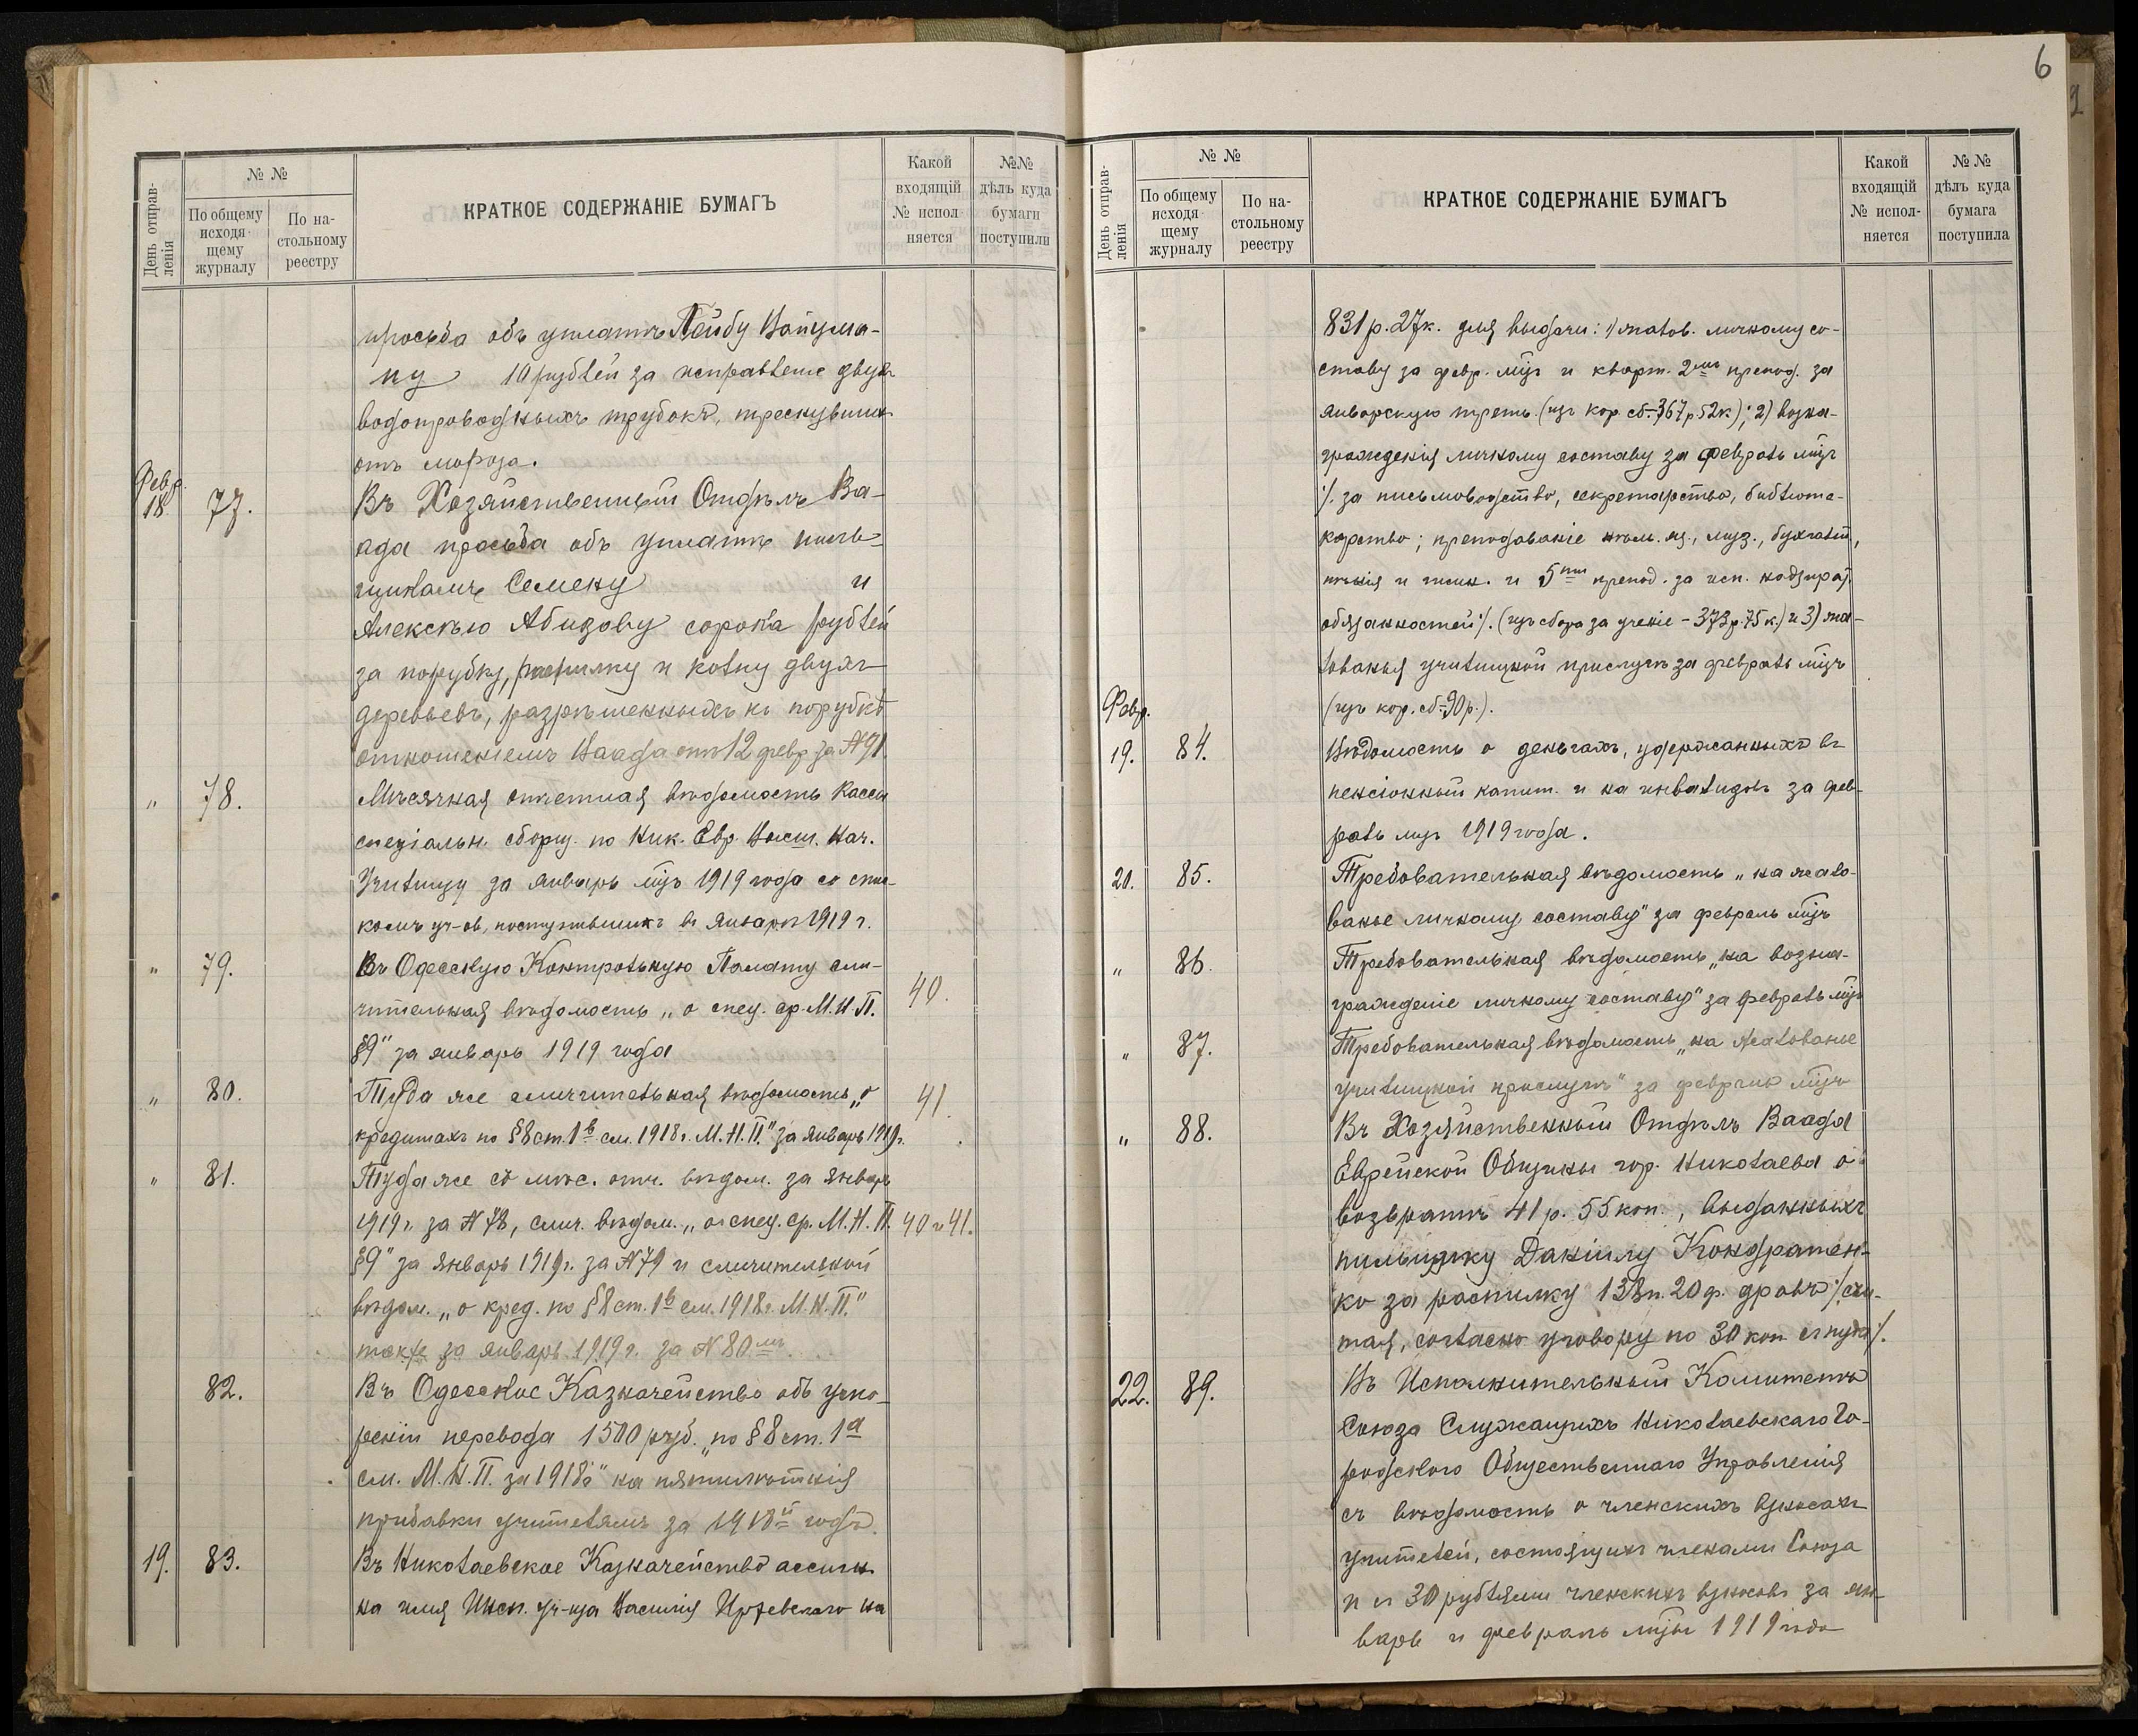 6
День отправ-
ленія
№ №
По общему
исходя-
щему
журналу
По на-
стольному
реестру
КРАТКОЕ СОДЕРЖАНІЕ БУМАГЪ
Какой
входящій
№ испол
няется
№№
дѣлъ куда
бумаги
поступили
просьба объ уплатѣ Лейбу
ну 10 рублей за исправленіе двухъ
водопроводныхъ трубокъ, треснувшихъ
отъ мороза.
Февр.
18. 77. Въ Хозяйственный Отдѣлъ Ва-
ада просьба объ уплатѣ пиль-
щикамъ Семену и
Алексѣю Абизову сорока рублей
за порубку, распилку и колку двухъ
деревьевъ, разрѣшенныхъ къ порубкѣ
отношеніемъ Ваада отъ 12 февр за № 91.
" 78. Мѣсячная отчетная вѣдомость Кассы
спеціальн. сборщ. по Ник. Евр. Нач.
Училищу за январь мцъ 1919 года со спис-
комъ уч-овъ, поступившихъ въ январѣ 1919 г.
" 79. Въ Одесскую Контрольную Палату сли-
чительная вѣдомость „о спец. ср. М.Н.П. 40.
§9" за январь 1919 года
" 80. Туда же сличительная вѣдомость „о 41.
кредитахъ по §8 ст. 1б см. 1918 г. М.Н.П." за январь 1919 г.
" 81. Туда же съ мѣс. отч. вѣдом. за январь
1919 г. за № 78, слич. вѣдом. „о спец. ср. М.Н.П. 40 и 41.
§9" за январь 1919 г. за № 79 и сличительной
вѣдом. „о кред. по §8 ст. 1б см. 1918 г. М.Н.П."
также за январь 1919 г. за № 80мъ
82. Въ Одесское Казначейство объ уско-
реніи перевода 1500 руб. „по §8 ст. 1а
см. М.Н.П. за 1918 г" на пятилѣтнія
прибавки учителямъ за 1918й годъ.
19. 83. Въ Николаевское Казначейство ассигн.
на имя Инсп. уч-ща Василія на
День отправ-
ленія
№ №
По общему
исходя-
щему
журналу
По на-
стольному
реестру
КРАТКОЕ СОДЕРЖАНІЕ БУМАГЪ
Какой
входящій
№ испол-
няется
№ №
дѣлъ куда
бумага
поступила
831 р. 27 к. для выдачи: 1) жалов. личному со-
ставу за февр. мцъ и кварт. 2мъ препод. за
январскую треть (изъ кор. сб.-367 р 52 к); 2) возна-
гражденія личному составу за февраль мцъ
/. за письмоводство, секретарство, библіоте-
карство; преподаваніе нѣм. яз., муз., бухгалт.,
пѣнія и гимн. и 5ти препод. за исп. надзират.
обязанностей /. (изъ сбора за ученіе - 373 р. 75 к.) и 3) жа-
лованья училищной прислугѣ за февраль мцъ
(изъ кор. сб-90 р.).
Февр.
19. 84. Вѣдомость о деньгахъ, удержанныхъ въ
пенсіонный капит. и на инвалидовъ за фев-
раль мцъ 1919 года.
20. 85. Требовательная вѣдомость „на жало-
ванье личному составу" за февраль мцъ
" 86. Требовательная вѣдомость „на возна-
гражденіе личному составу" за февраль мцъ
" 87. Требовательная вѣдомость „на жалованье
училищной прислугѣ" за февраль мцъ
" 88. Въ Хозяйственный Отдѣлъ Ваада
Еврейской Общины гор. Николаева о
возвратѣ 41 р. 55 коп., выданныхъ
пильщику Даніилу Кондратен-
ко за распилку 138 п. 20 ф. дровъ /. счи-
тая, согласно уговору по 30 коп. съ пуда /.
22. 89. Въ Исполнительный Комитетъ
Союза Служащихъ Николаевскаго Го-
родского Общественнаго Управленія
съ вѣдомость о членскихъ взносахъ
учителей, состоящихъ членами Союза
и съ 30 рублями членскихъ взносовъ за ян-
варь и февраль мцы 1919 года